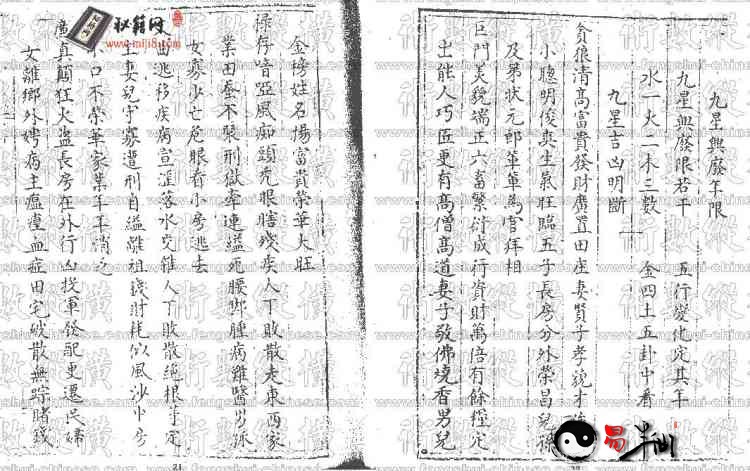 九星興廢年限
九星興廢限若干 五行變化定其年
水一火二木三數 金四土五卦中看
九星吉凶明斷
貪狼清高富貴發財廣置田庄妻賢子孝貌才
小聰明俊真生氣旺臨五子長房分外榮昌兒孫
及第狀元郎 為官拜相
巨門美貌端正六畜繁衍成行資財萬倍有餘糧定
出能人巧匠更有高僧高道妻子敬佛燒香男兒
金榜姓名揚富貴榮華大旺
祿存喑啞風痴頭禿眼瞎殘疾人丁敗散走東西家
業田蚕不裝刑獄牽連縊死腰脚腫病難醫男孤
女寡少亡危眼看小房逃去
曲逃移疾病 落水交 人丁敗散絕根 定
主妻兒守寡遭刑自縊離祖 財耗似風沙中房
小口不榮華家業年年消乏
廉貞顛狂火盜長房在外行凶投軍發配更遷民婦
女離鄉外 病主瘟 血症田宅破散無踪賭錢
秘籍网
www.miji8.com
易
縱橫數術
www.fengshui-chinese.com